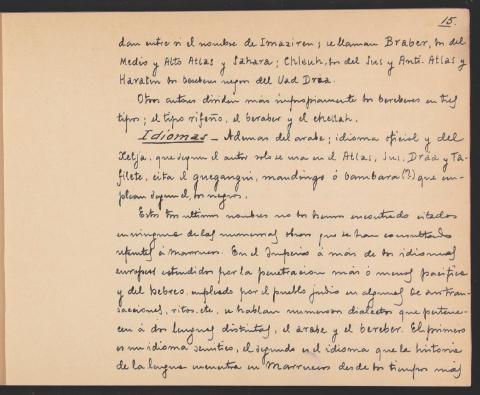 15.
dan entre si el nombre de Imaziren; se llaman Braber, los del
Medio y Alto Atlas y Sahara; Chleuh, los del Sus y Anti-Atlas y
Haratin los bereberes negros del Uad Draa.
Otros autores dividen más impropiamente los bereberes en tres
tipos; el tipo rifeño, el beraber y el chellah.
Idiomas - Ademas del arabe; idioma oficial y del
Xelja, que segun el autor solo se usa en el Atlas, Sus, Draa y Ta-
filete, cita el guegangui, mandingo ó bambara (?) que em-
plean segun el, los negros.
Estos tres ultimos nombres no los hemos encontrado citados
en ninguna de las numerosas obras que se han consultado
referentes á Marruecos. En el Imperio á más de los idiomas
europeos estendidos por la penetracion más ó menos pacifica
y del hebreo, empleado por el pueblo judio en algunas de sus tran-
sacciones, ritos, etc, se hablan numerosos dialectos que pertene-
cen á dos lenguas distintas, el arabe y el bereber. El primero
es un idioma semitico, el segundo es el idioma que la historia
de la lengua encuentra en Marruecos desde los tiempos más